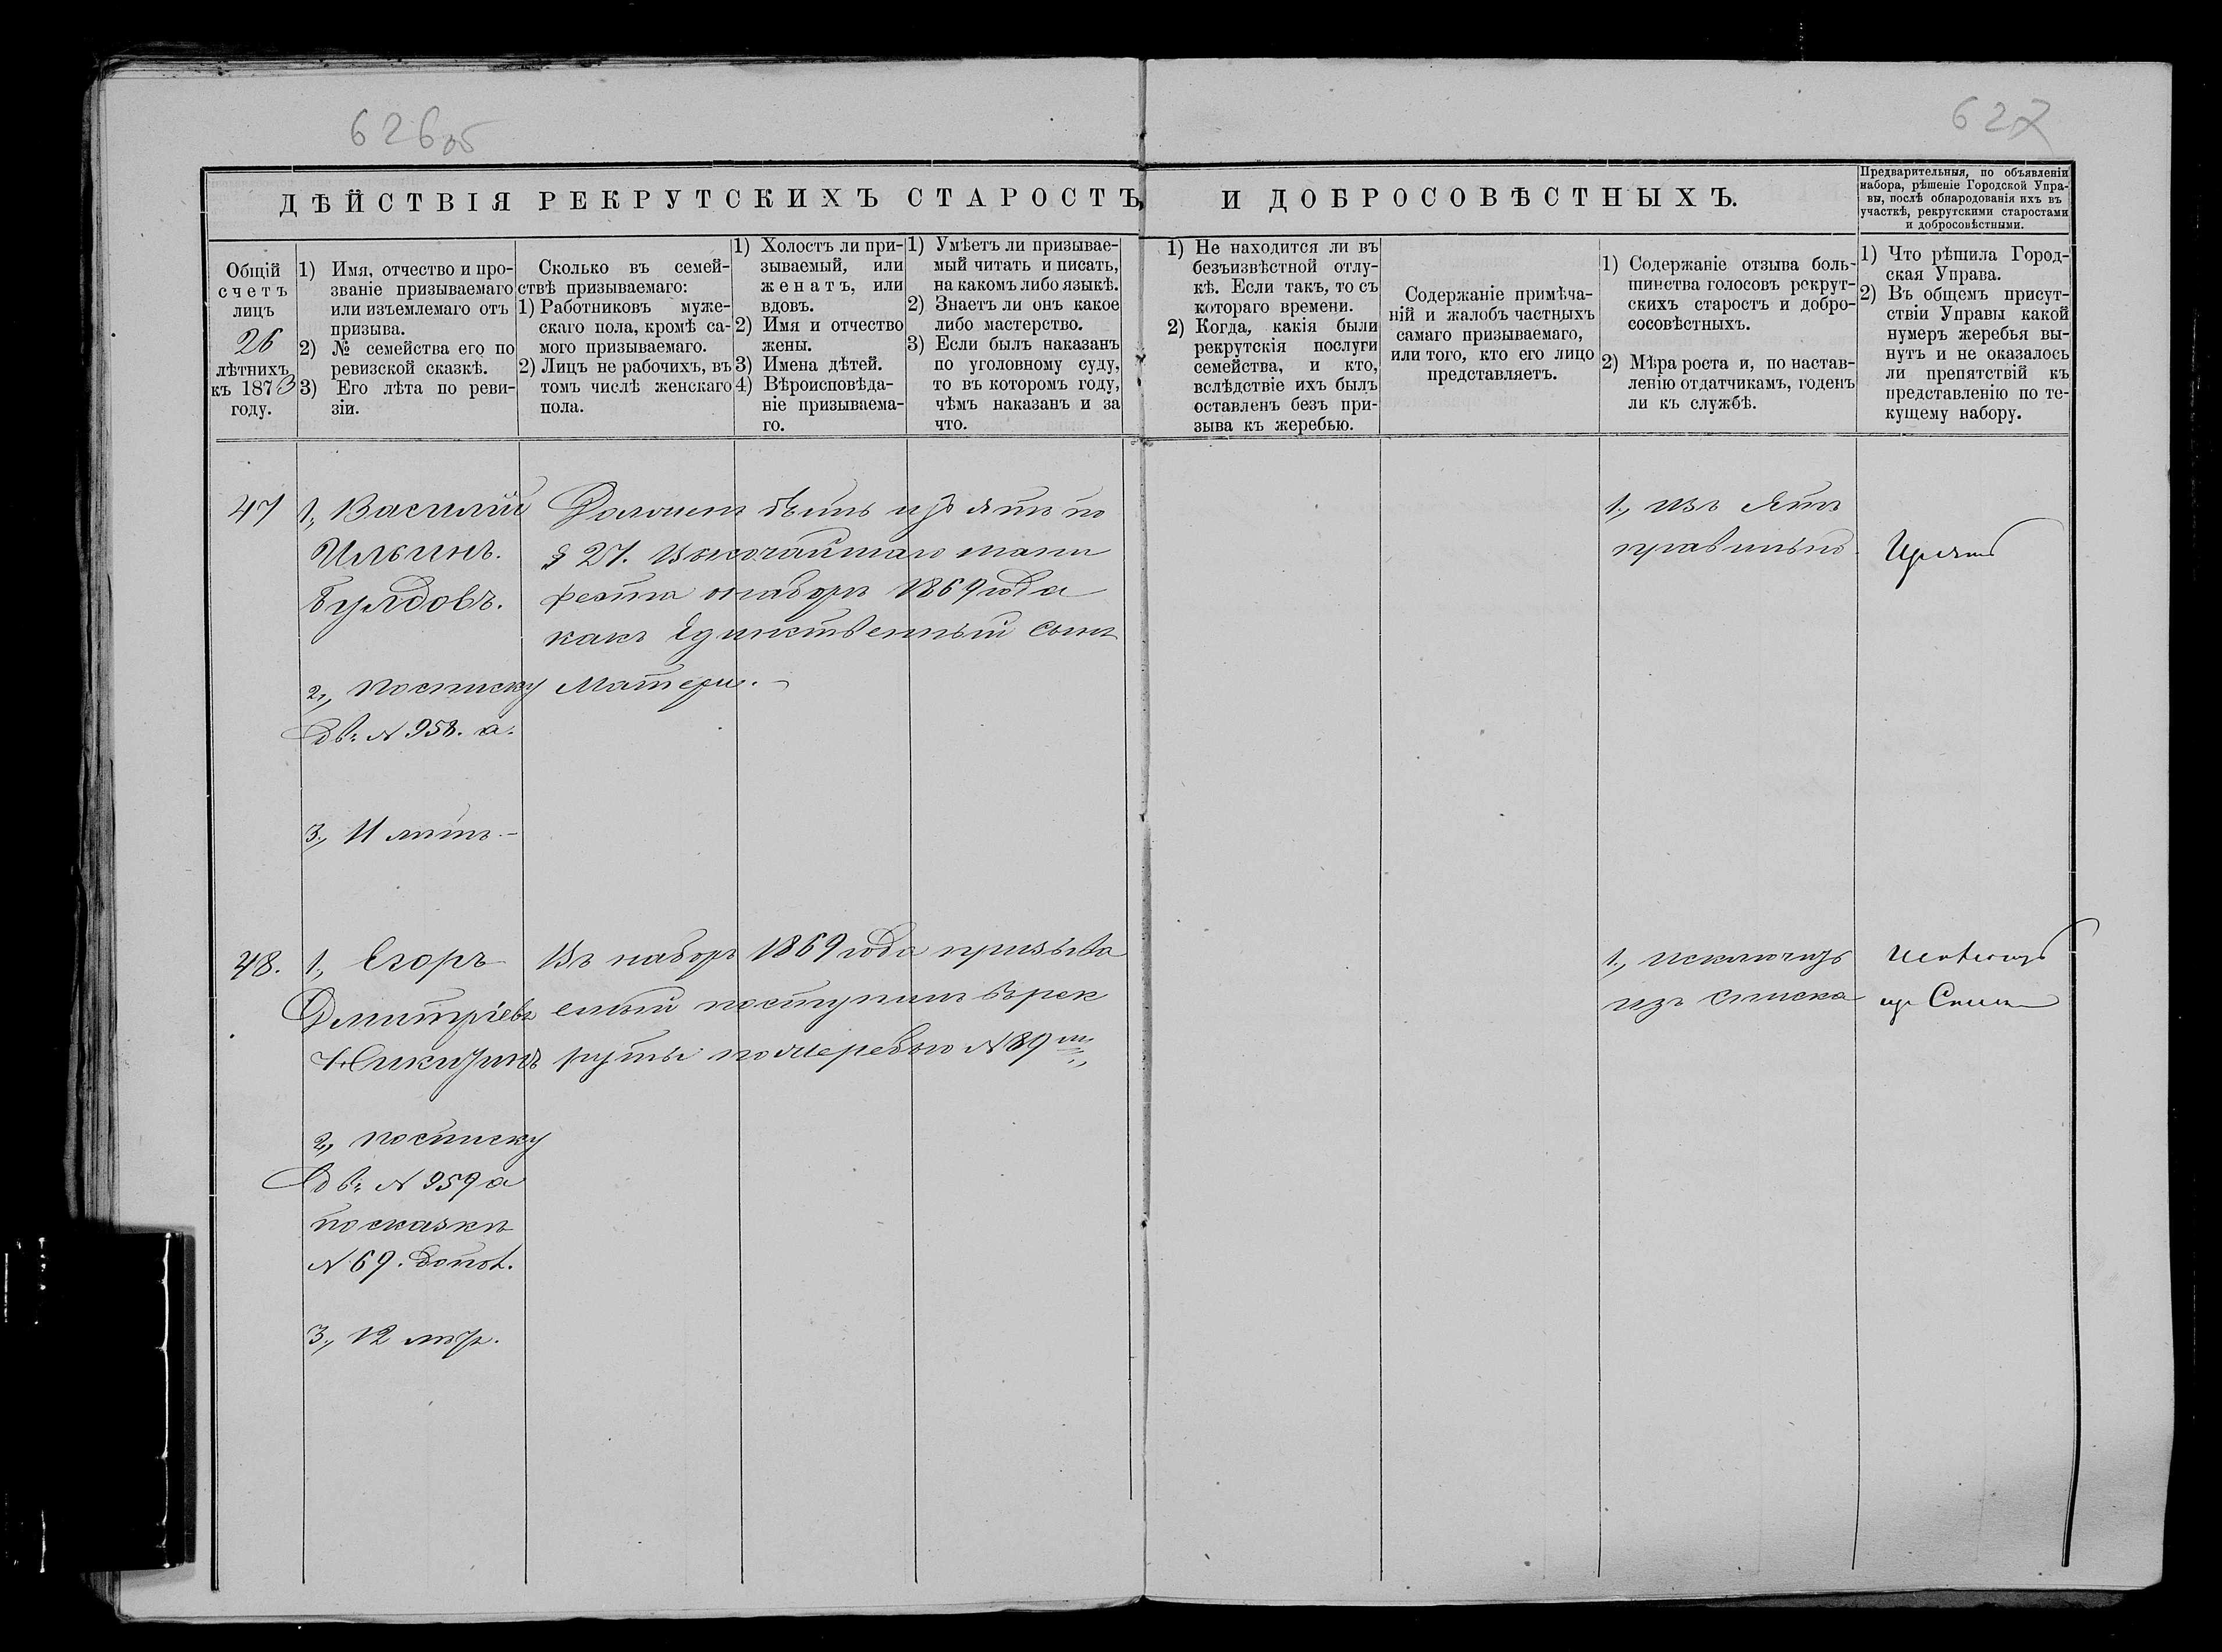 626об
627
ДѢЙСТВІЯ РЕКРУТСКИХЪ СТАРОСТЪ
И ДОБРОСОВѢСТНЫХЪ.
Предварительныя, по объявленіи
набора, рѣшеніе Городской Упра-
вы, послѣ обнародованія ихъ въ
участкѣ, рекрутскими старостами
и добросовѣстными.
Общій
счетъ
лицъ
26
лѣтнихъ
къ 1873
году.
1) Имя, отчество и про-
званіе призываемаго
или изъемлемаго отъ
призыва.
2) № семейства его по
ревизской сказкѣ.
3) Его лѣта по реви-
зіи.
Сколько въ семей-
ствѣ призываемаго:
1) Работниковъ муже-
скаго пола, кромѣ са-
мого призываемаго.
2) Лицъ не рабочихъ, въ
томъ числѣ женскаго
пола.
1) Холостъ ли при-
зываемый, или
женатъ, или
вдовъ.
2) Имя и отчество
жены.
3) Имена дѣтей.
4) Вѣроисповѣда-
ніе призываема-
го.
1) Умѣетъ ли призывае-
мый читать и писать,
на какомъ либо языкѣ.
2) Знаетъ ли онъ какое
либо мастерство.
3) Если былъ наказанъ
по уголовному суду,
то въ которомъ году,
чѣмъ наказанъ и за
что.
1) Не находится ли въ
безъизвѣстной отлу-
кѣ. Если такъ, то съ
котораго времени.
2) Когда, какія были
рекрутскія послуги
семейства, и кто,
вслѣдствіе ихъ былъ
оставленъ безъ при-
зыва къ жеребью.
Содержаніе примѣча-
ній и жалобъ частныхъ
самаго призываемаго,
или того, кто его лицо
представляетъ.
1) Содержаніе отзыва боль-
шинства голосовъ рекрут-
скихъ старостъ и добро-
сосовѣстныхъ.
2) Мѣра роста и, по настав-
ленію отдатчикамъ, годенъ
ли къ службѣ.
1) Что рѣшила Город-
ская Управа.
2) Въ общемъ присут-
ствіи Управы какой
нумеръ жеребья вы-
нутъ и не оказалось
ли препятствій къ
представленію по те-
кущему набору.
47
1., Василій
Ильинъ.
2., по списку
дв: № 958. а.
3., 11 лѣтъ.
Должен быть изъятъ по
§ 27. Высочайшаго мани
феста о наборѣ 1869 года
какъ Единственный сынъ
Матери.
1., изъятъ
правильно
Изъятъ
48.
1., Егоръ
Дмитріевъ
2., по списку
дв: № 959 а
по сказкѣ
№ 69. допол.
3., 12 лѣтъ.
Въ наборъ 1869 года призыва
емый поступилъ въ рек
руты по жеребью № 89
1., исключить
изъ списка